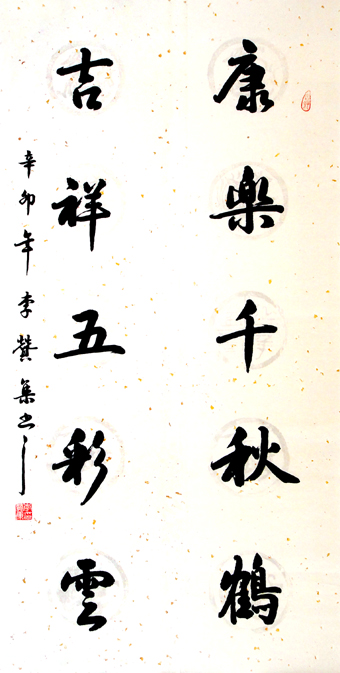 康樂千秋鶴
吉祥五彩雲
辛卯年李贊集書